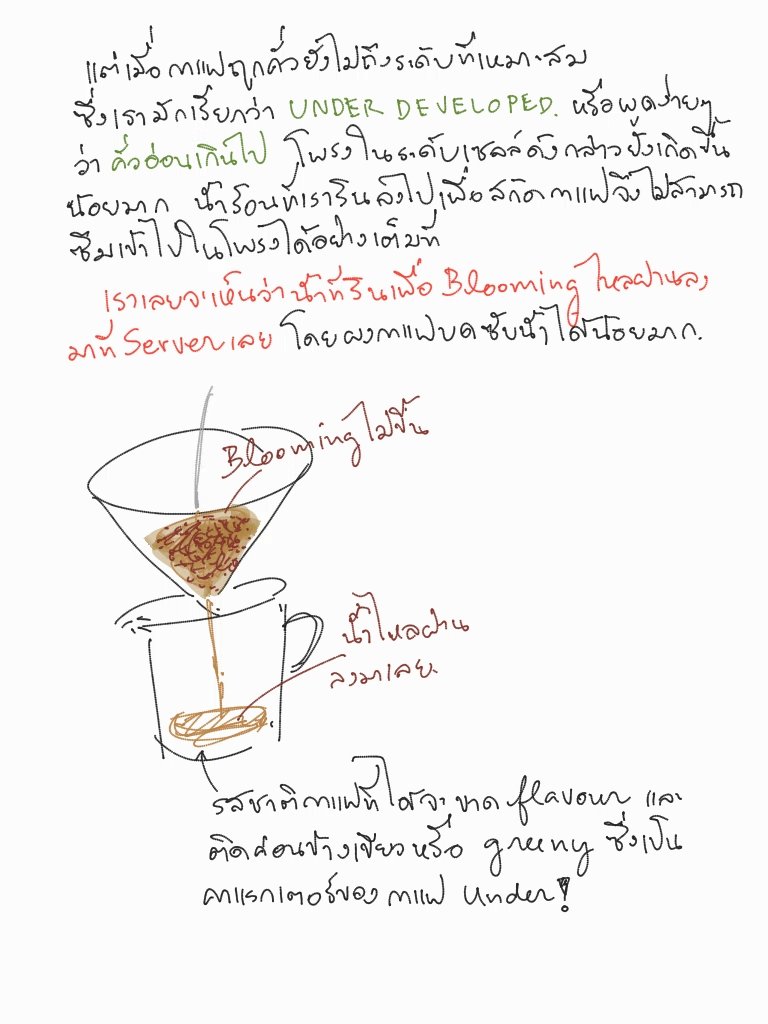 แต่เมื่อกาแฟถูกคั่วยังไม่ถึงระดับที่เหมาะสม
ซึ่งเรามักเรียกว่า UNDER DEVELOPED. หรือพูดง่ายๆ
ว่า คั่วอ่อนเกินไป โพรงในระดับเซลล์ดังกล่าวยังเกิดขึ้น
น้อยมาก น้ำร้อนที่เรารินลงไปเพื่อสกัดกาแฟจึงไม่สามารถ
ซึมเข้าไปในโพรงได้อย่างเต็มที่
เราเลยจะเห็นว่าน้ำที่รินเพื่อ Blooming ไหลผ่านลง
มาที่ Server เลย โดยผงกาแฟบดซับน้ำได้น้อยมาก.
Blooming ไม่ขึ้น
น้ำไหลผ่าน
ลงมาเลย.
รสชาติกาแฟที่ได้จะขาด flavour และ
ติดค่อนข้างเขียวหรือ greeny ซึ่งเป็น
คาแรกเตอร์ของกาแฟ Under!